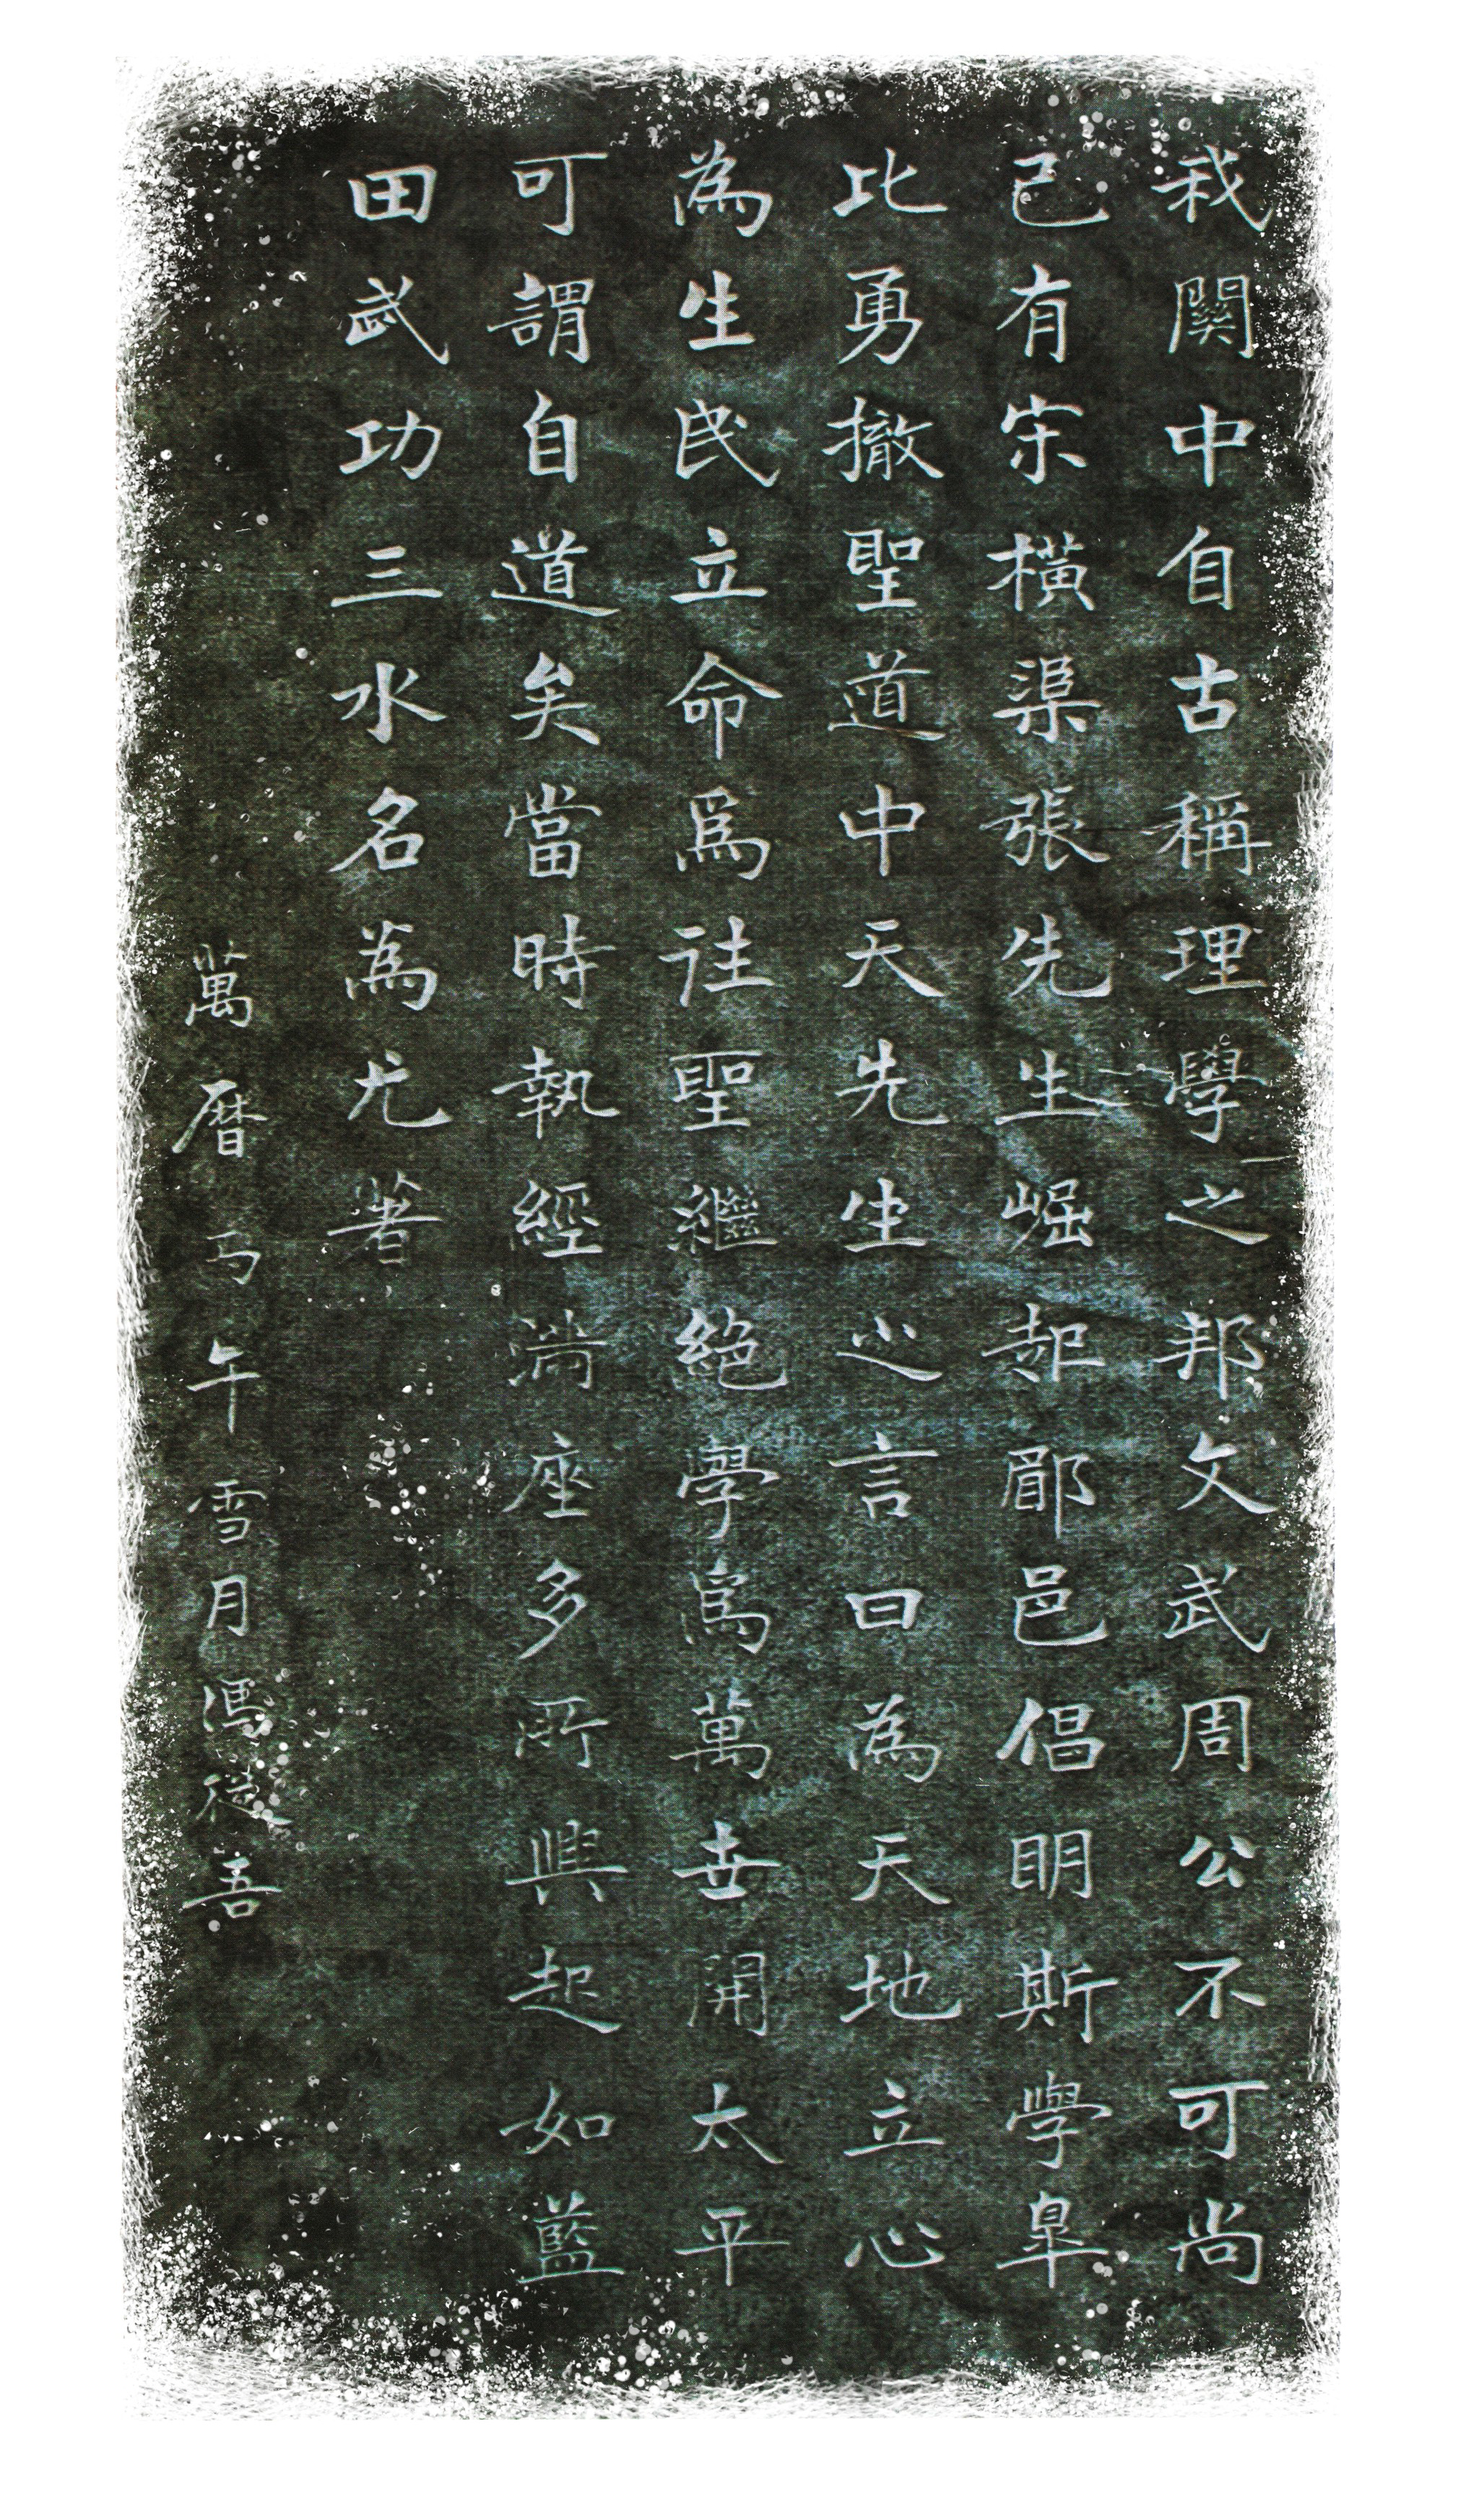 我關中自古稱理學之邦文武周公不可尚
已有宋橫渠張先生崛起郿邑倡明斯學皐
比勇撤聖道中天先生之言曰為天地立心
為生民立命爲往聖繼絕學爲萬世開太平
可謂自道矣當時執經滿座多所興起如藍
田武功三水名為尤著
萬曆午雪月馮從吾